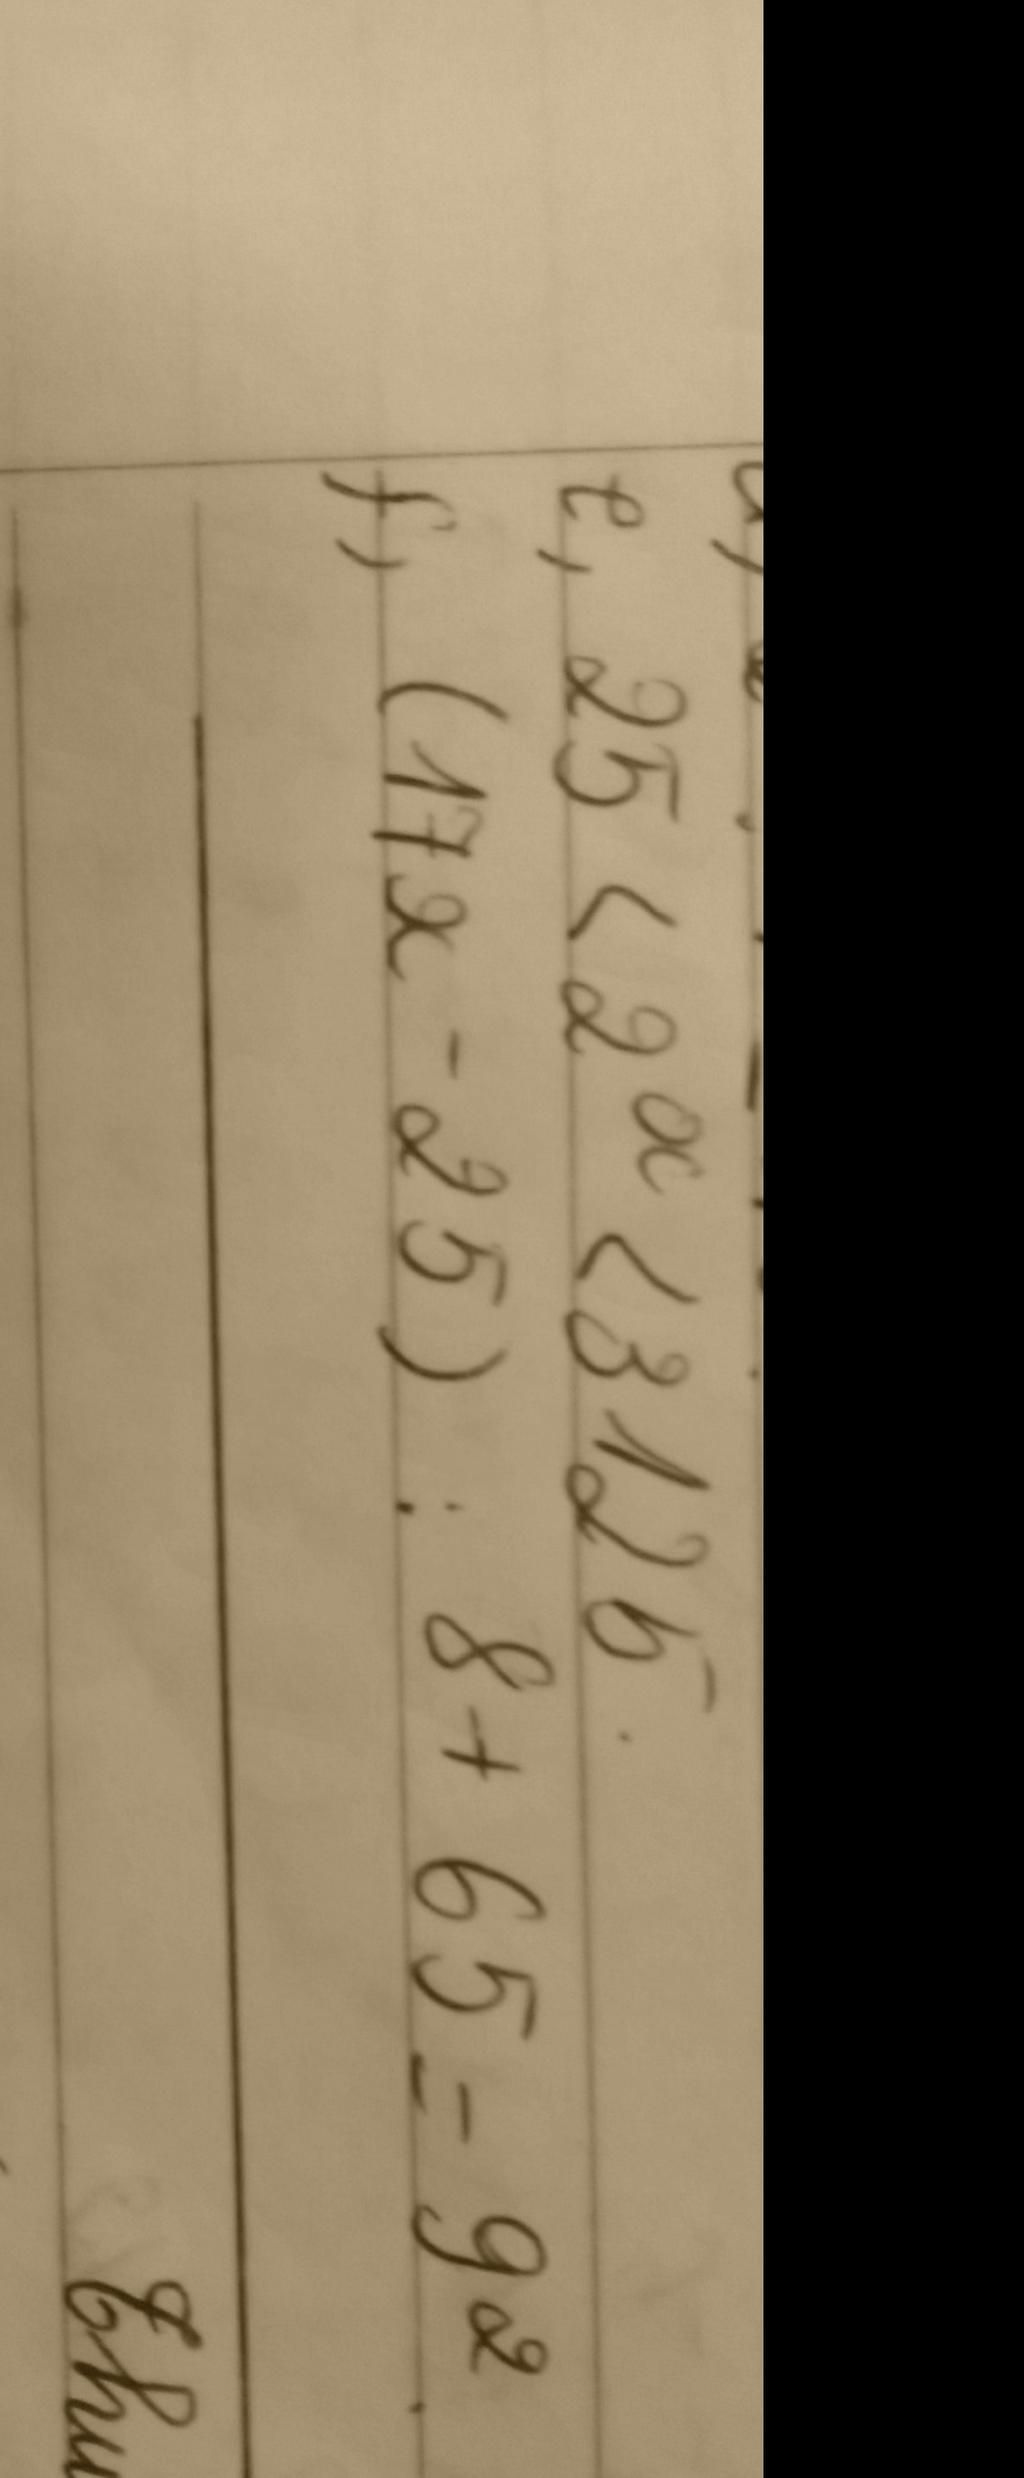 e, 25 < 2ˣ < 3125.
f, (17x - 25) : 8 + 65 = 9²